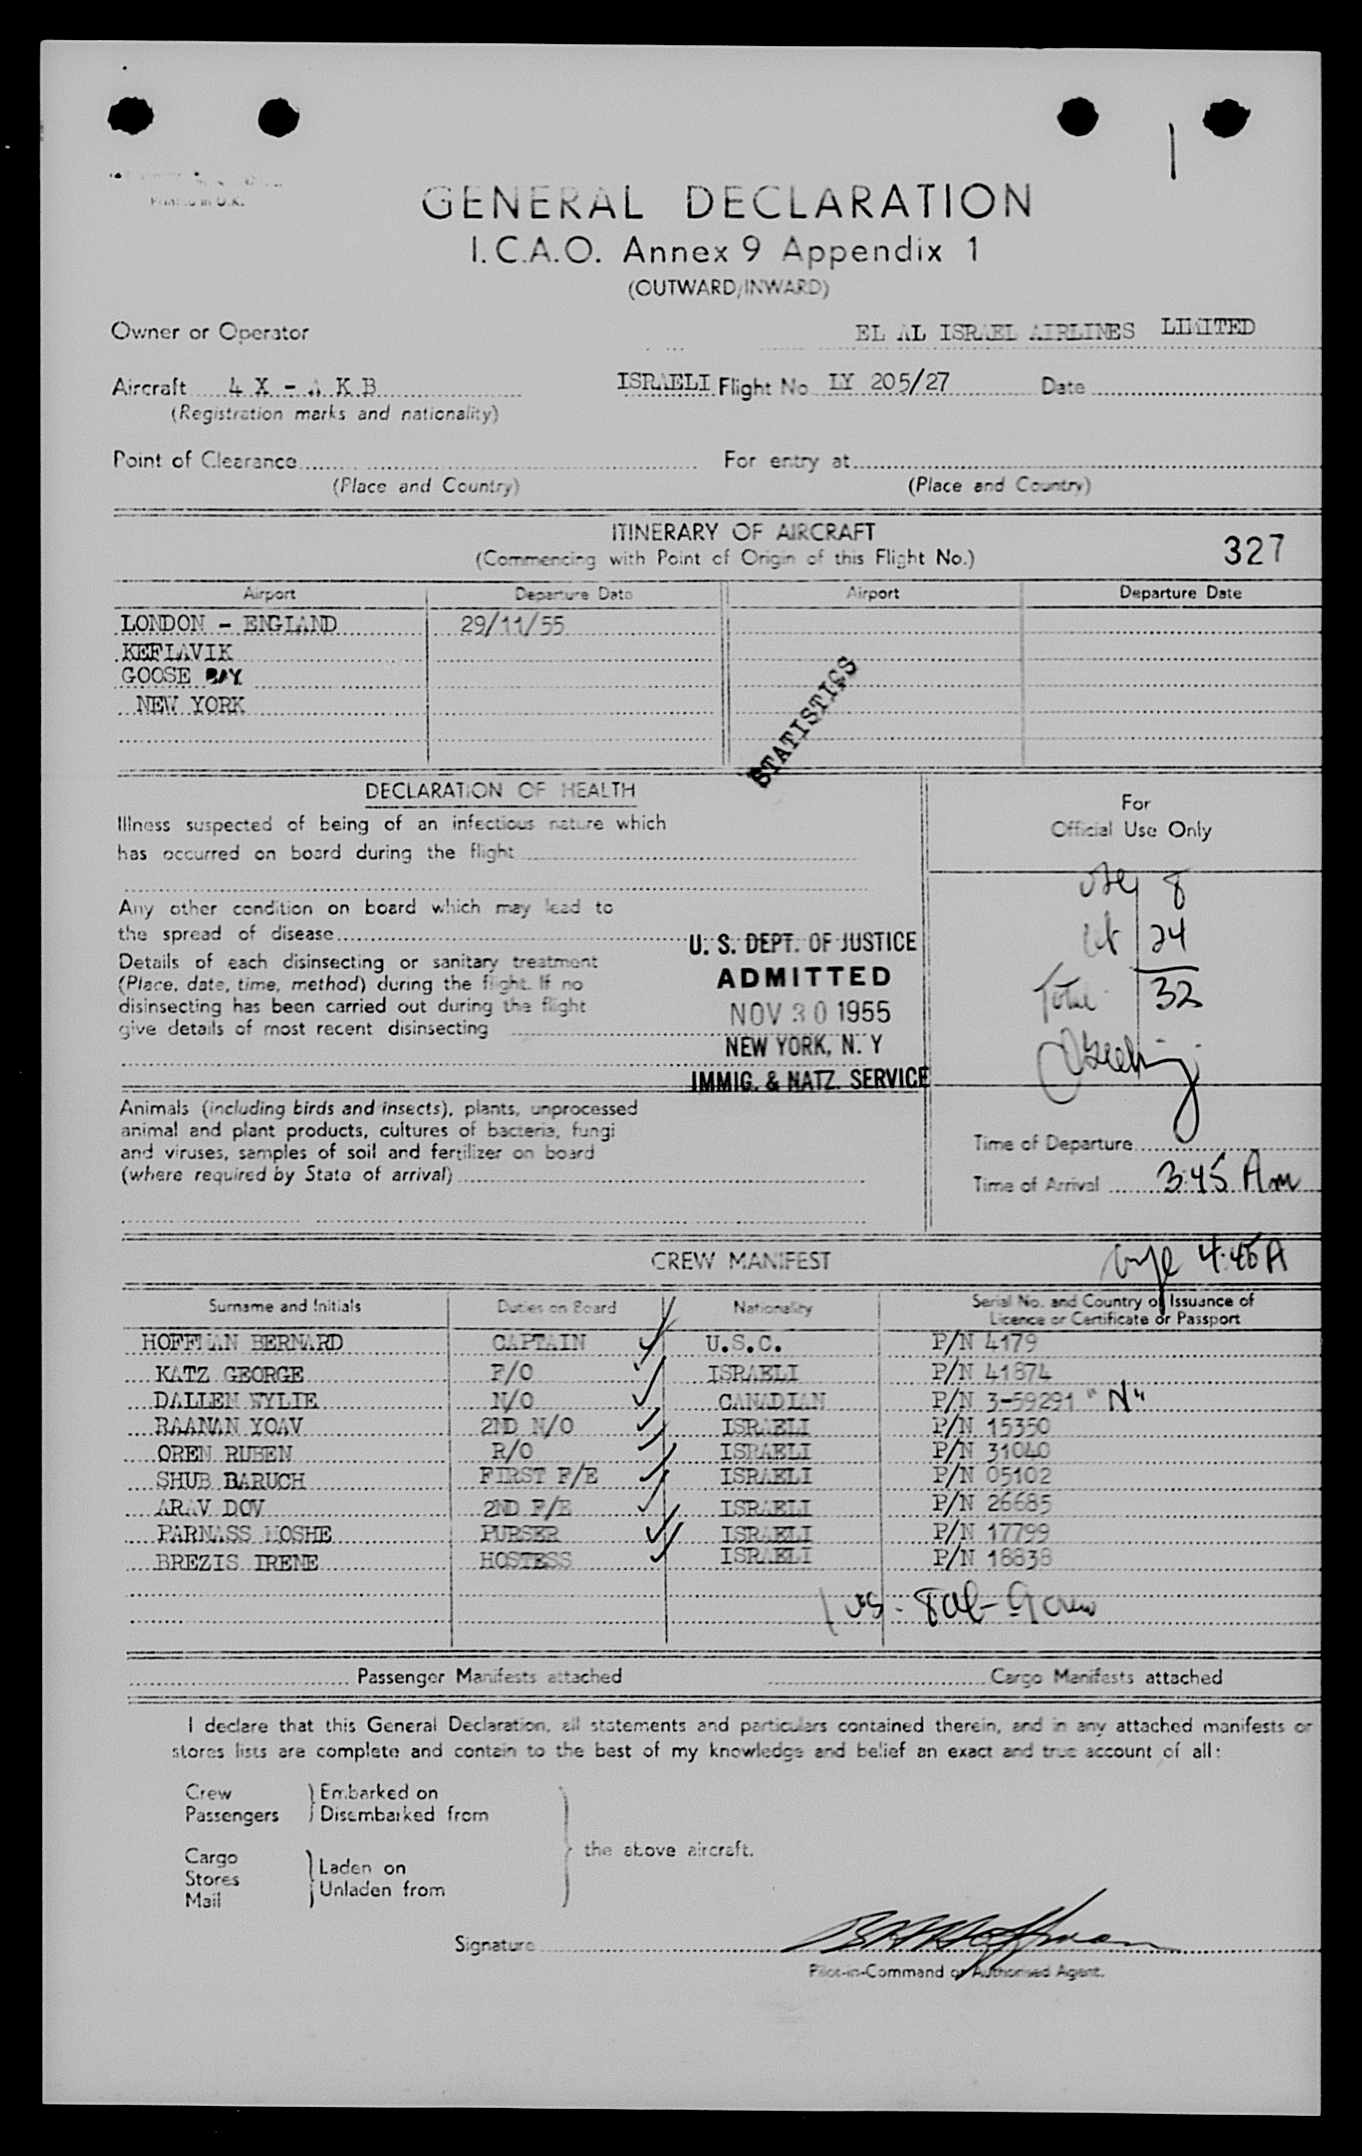 Printed in U.K.
GENERAL DECLARATION
I.C.A.O. Annex 9 Appendix 1
(OUTWARD/INWARD)
Owner or Operator EL AL ISRAEL AIRLINES LIMITED
Aircraft 4 X - A K B ISRAELI Flight No. LY 205/27 Date
(Registration marks and nationality)
Point of Clearance For entry at
(Place and Country) (Place and Country)
ITINERARY OF AIRCRAFT
(Commencing with Point of Origin of this Flight No.) 327
Airport Departure Date Airport Departure Date
LONDON - ENGLAND 29/11/55
KEFLAVIK
GOOSE BAY
NEW YORK
STATISTICS
DECLARATION OF HEALTH
Illness suspected of being of an infectious nature which
has occurred on board during the flight
Any other condition on board which may lead to
the spread of disease
Details of each disinsecting or sanitary treatment
(Place, date, time, method) during the flight. If no
disinsecting has been carried out during the flight
give details of most recent disinsecting
U. S. DEPT. OF JUSTICE
ADMITTED
NOV 30 1955
NEW YORK, N. Y
IMMIG. & NATZ. SERVICE
For
Official Use Only
8
24
Total 32
Animals (including birds and insects), plants, unprocessed
animal and plant products, cultures of bacteria, fungi
and viruses, samples of soil and fertilizer on board
(where required by State of arrival)
Time of Departure
Time of Arrival 3:45 Am
CREW MANIFEST
4:45 A
Surname and Initials Duties on Board Nationality Serial No. and Country of Issuance of
Licence or Certificate or Passport
HOFFMAN BERNARD CAPTAIN U.S.C. P/N 4179
KATZ GEORGE F/O ISRAELI P/N 41874
DALLEN WYLIE N/O CANADIAN P/N 3-59291 "N"
RAANAN YOAV 2ND N/O ISRAELI P/N 15350
OREN RUBEN R/O ISRAELI P/N 31040
SHUB BARUCH FIRST F/E ISRAELI P/N 05102
ARAV DOV 2ND F/E ISRAELI P/N 26685
PARNASS MOSHE PURSER ISRAELI P/N 17799
BREZIS IRENE HOSTESS ISRAELI P/N 18838
1 us - 8 al - 9 crew
Passenger Manifests attached Cargo Manifests attached
I declare that this General Declaration, all statements and particulars contained therein, and in any attached manifests or
stores lists are complete and contain to the best of my knowledge and belief an exact and true account of all:
Crew
Passengers
Embarked on
Disembarked from
Cargo
Stores
Mail
Laden on
Unladen from
the above aircraft.
Signature
Pilot-in-Command or Authorised Agent.